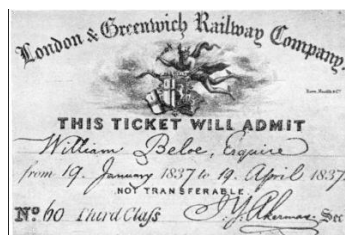 London & Greenwich Railway Company.
THIS TICKET WILL ADMIT
William Beloe, Esquire
from 19. January 1837 to 19. April 1837.
NOT TRANSFERABLE.
No 60 Third Class J.Y. Akerman. Sec